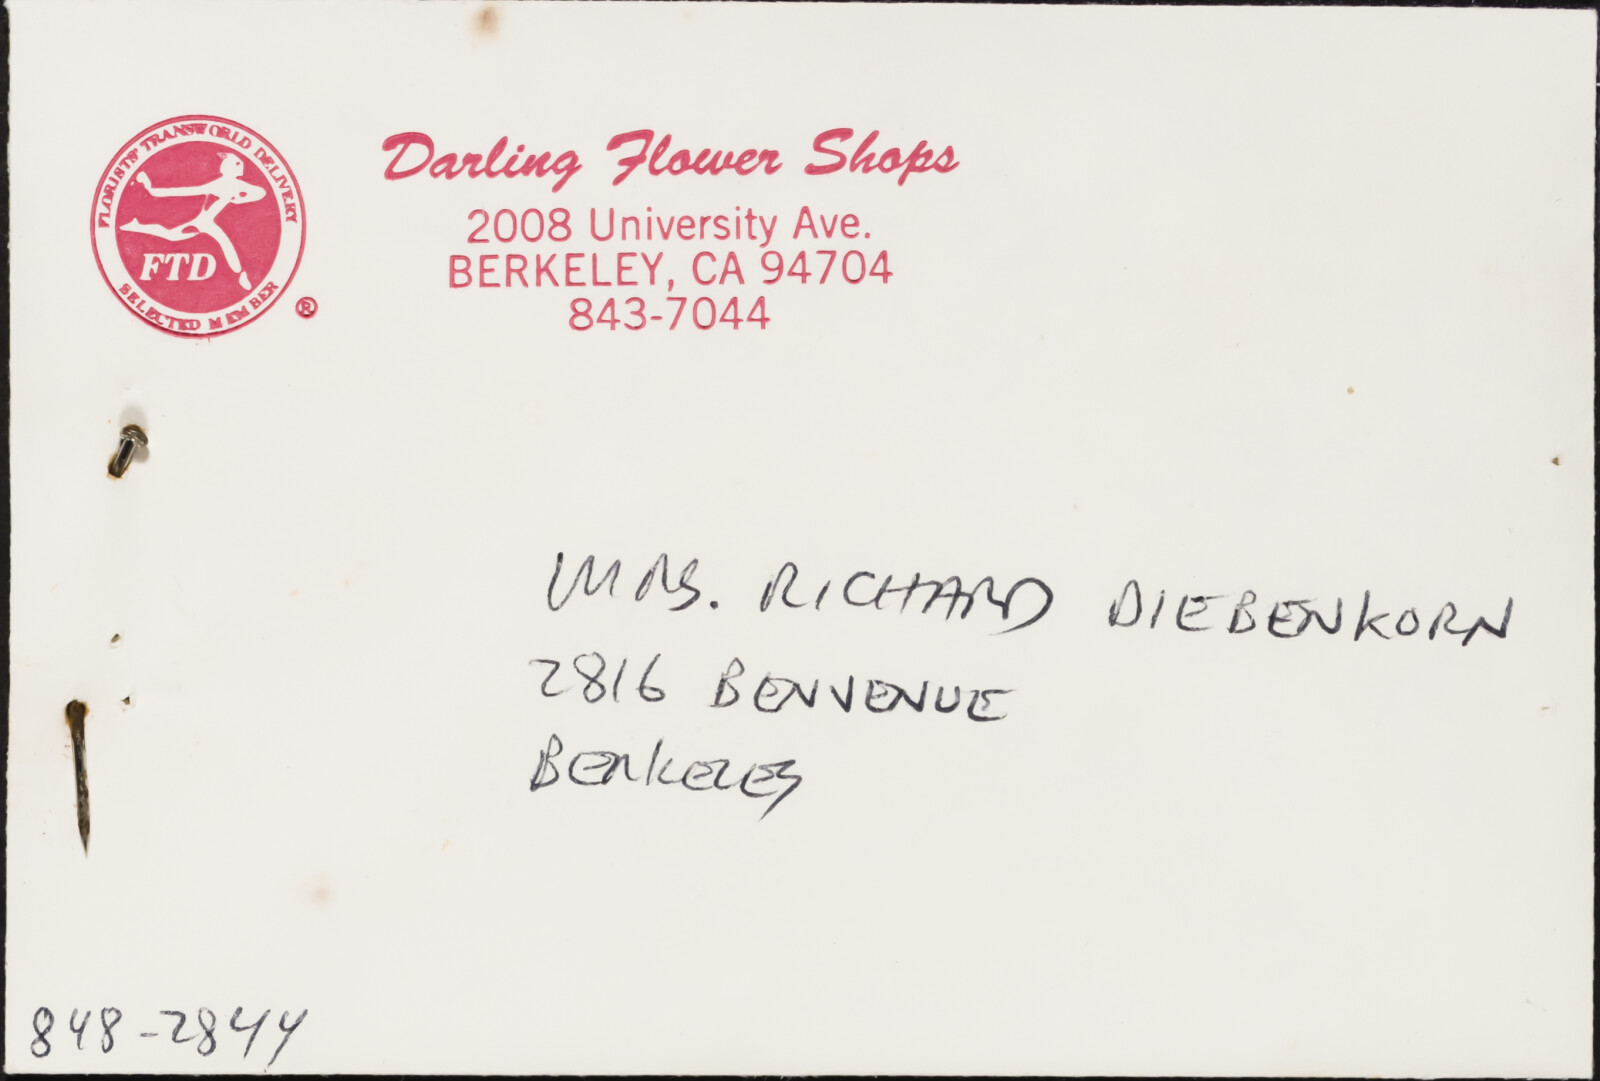 FLORISTS' TRANSWORLD DELIVERY
FTD
SELECTED MEMBER
®
Darling Flower Shops
2008 University Ave.
BERKELEY, CA 94704
843-7044
MRS. RICHARD DIEBENKORN
2816 BENVENUE
BERKELEY
848-2844